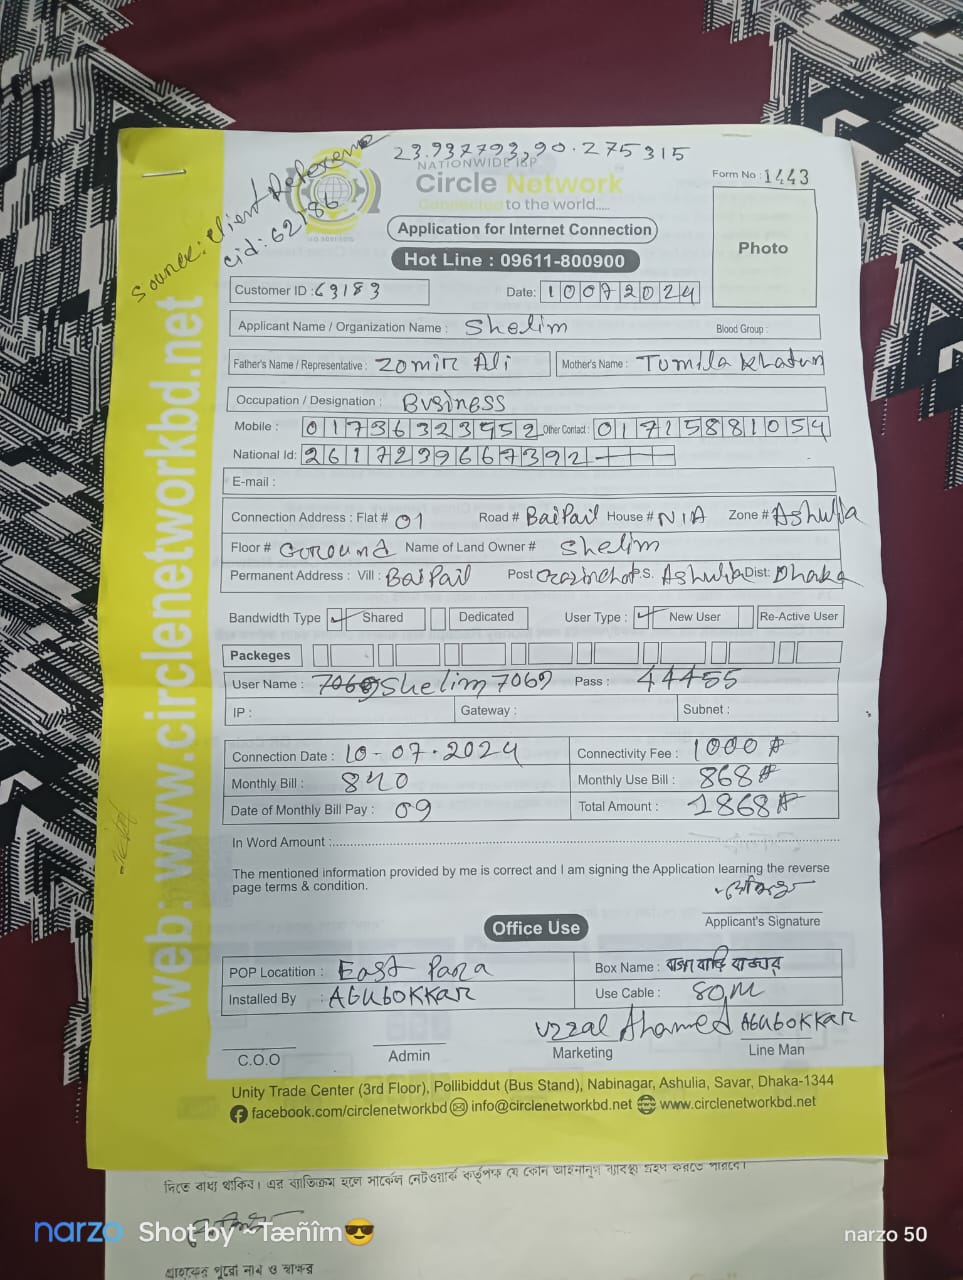 23.937793,90.275315
Source: Client Reference
cid: 62186
NATIONWIDE ISP
Circle Network
Connected to the world.....
Form No : 1443
Application for Internet Connection
Photo
Hot Line : 09611-800900
Customer ID : 63183
Date: 10072024
Applicant Name / Organization Name : Shelim
Blood Group :
Father's Name / Representative : Zomir Ali
Mother's Name : Tomila Khatun
Occupation / Designation : Business
Mobile : 01736323952 Other Contact : 01715881054
National Id: 2617239667392
E-mail :
Connection Address : Flat # 01 Road # BaiPail House # N/A Zone # Ashulia
Floor # Goround Name of Land Owner # Shelim
Permanent Address : Vill : BaiPail Post P.S. Ashulia Dist: Dhaka
Bandwidth Type Shared Dedicated User Type : New User Re-Active User
Packeges
User Name : Shelim7069 Pass : 44455
IP : Gateway : Subnet :
Connection Date : 10-07-2024 Connectivity Fee : 1000
Monthly Bill : 840 Monthly Use Bill : 868
Date of Monthly Bill Pay : 09 Total Amount : 1868
In Word Amount :
The mentioned information provided by me is correct and I am signing the Application learning the reverse
page terms & condition.
Applicant's Signature
Office Use
POP Locatition : East Para Box Name :
Installed By : Abubokkar Use Cable : 80m
Uzzal Ahamed Abubokkar
C.O.O Admin Marketing Line Man
Unity Trade Center (3rd Floor), Pollibiddut (Bus Stand), Nabinagar, Ashulia, Savar, Dhaka-1344
facebook.com/circlenetworkbd info@circlenetworkbd.net www.circlenetworkbd.net
web: www.circlenetworkbd.net
দিতে বাধ্য থাকিব। এর ব্যতিক্রম হলে সার্কেল নেটওয়ার্ক কর্তৃপক্ষ যে কোন আইনানুগ ব্যবস্থা গ্রহণ করতে পারবে।
গ্রাহকের পুরো নাম ও স্বাক্ষর
narzo Shot by ~Tæñîm😎
narzo 50